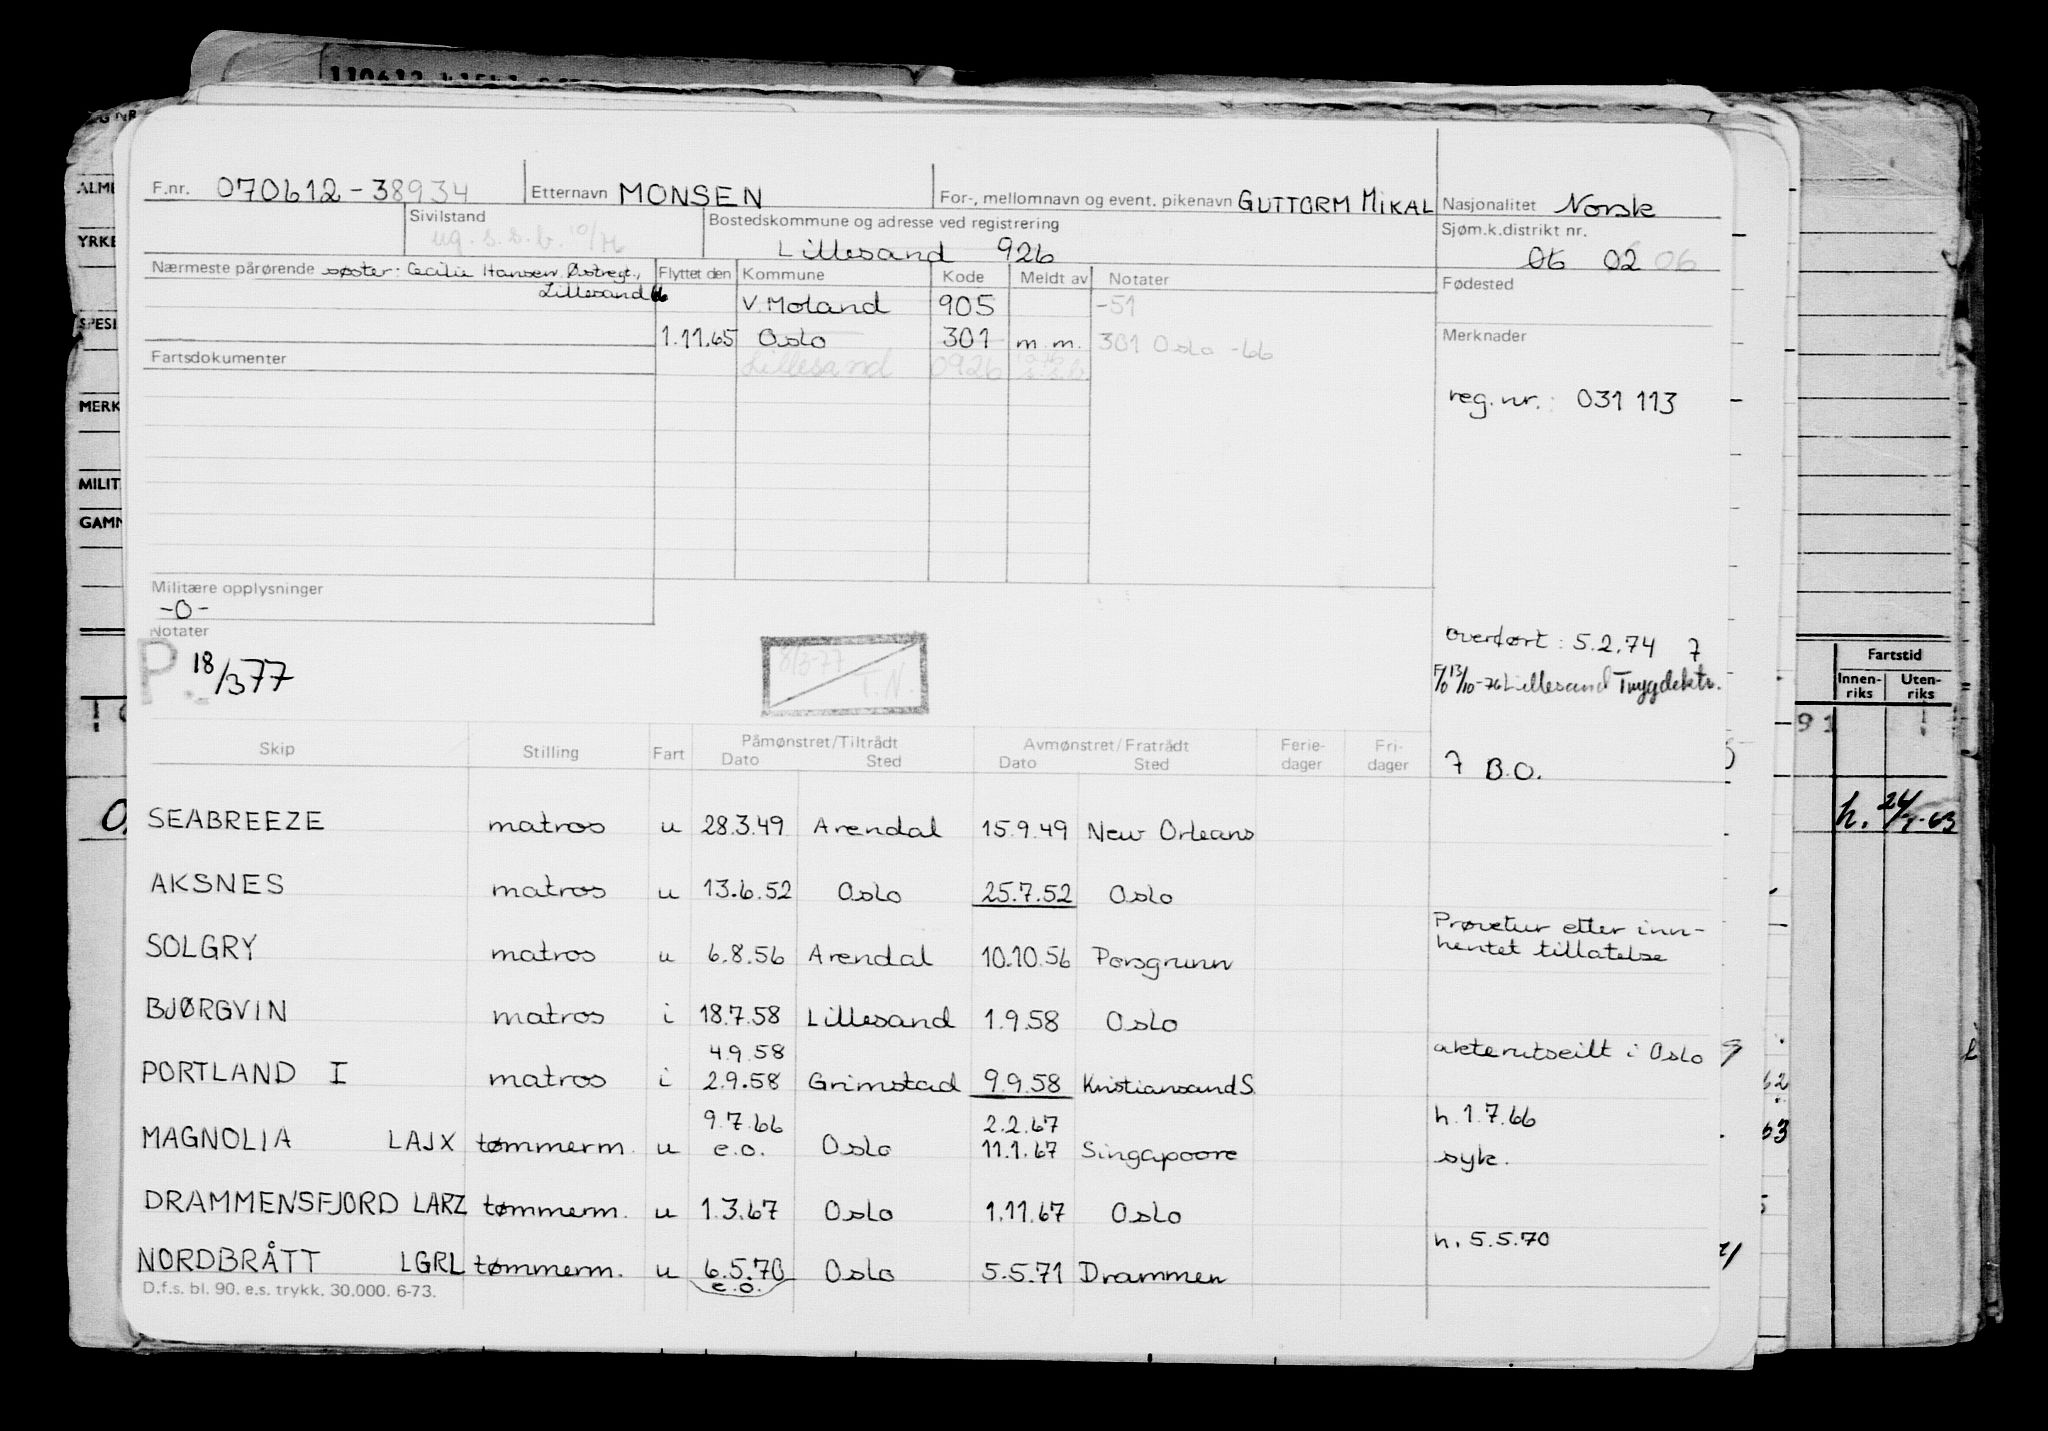 F.nr. 070612-38934 Etternavn MONSEN For-, mellomnavn og event. pikenavn GUTTORM MIKAL Nasjonalitet Norsk
Sivilstand ug. s.s.b. 10/76 Bostedskommune og adresse ved registrering Sjøm.k.distrikt nr.
Lillesand 926 06 02 06
Nærmeste pårørende søster: Cecilie Hansen, Østregt., Flyttet den Kommune Kode Meldt av Notater Fødested
Lillesand
V. Moland 905 -51
1.11.65 Oslo 301 m.m. 301 Oslo -66 Merknader
Fartsdokumenter Lillesand 0926
reg.nr.: 031 113
Militære opplysninger
-0-
Notater
P. 18/3 77
8/3-77
T.N.
overført: 5.2.74 7
F/O 13/10-76 Lillesand Trygdektr.
Skip Stilling Fart Påmønstret/Tiltrådt Avmønstret/Fratrådt Ferie- Fri-
Dato Sted Dato Sted dager dager
7 B.O.
SEABREEZE matros u 28.3.49 Arendal 15.9.49 New Orleans
AKSNES matros u 13.6.52 Oslo 25.7.52 Oslo
Prøvetur etter inn-
hentet tillatelse
SOLGRY matros u 6.8.56 Arendal 10.10.56 Porsgrunn
BJØRGVIN matros i 18.7.58 Lillesand 1.9.58 Oslo
4.9.58 akterutseilt i Oslo
PORTLAND I matros i 2.9.58 Grimstad 9.9.58 Kristiansand S.
9.7.66 2.2.67 h. 1.7.66
MAGNOLIA LAJX tømmerm. u e.o. Oslo 11.1.67 Singapoore syk.
DRAMMENSFJORD LARZ tømmerm. u 1.3.67 Oslo 1.11.67 Oslo
h. 5.5.70
NORDBRÅTT LGRL tømmerm. u 6.5.70 Oslo 5.5.71 Drammen
e.o.
D.f.s. bl. 90. e.s. trykk. 30.000. 6-73.
ALME
YRKE
SPESI
MERK
MILIT
GAMN
Fartstid
Innen- Uten-
riks riks
91